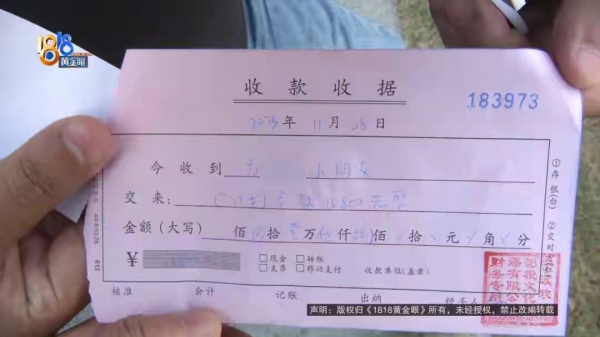 1818
黄金眼
收款收据
183973
2023年 11月 28日
今收到 小朋友
交来: 15800元整
金额(大写) 佰 拾壹万伍仟捌佰 拾 元 角 分
¥
现金 转账
支票 移动支付 收款单位(盖章)
核准 会计 记账 出纳
①存根(白)
声明：版权归《1818黄金眼》所有，未经授权，禁止改编转载